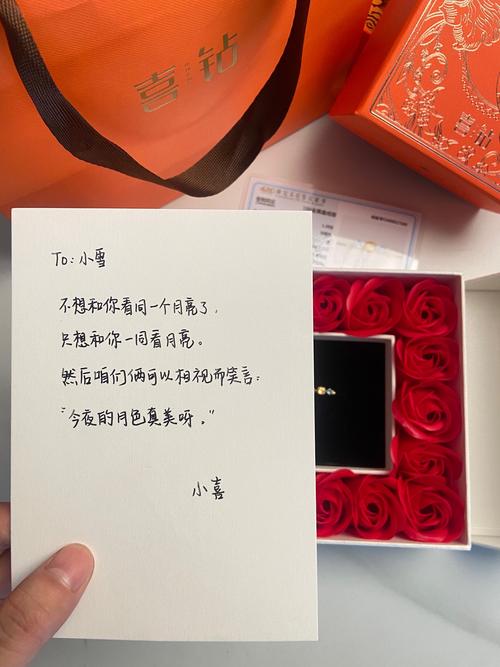 喜钻
喜钻
To: 小雪
不想和你看同一个月亮了,
只想和你一同看月亮。
然后咱们俩可以相视而笑言:
“今夜的月色真美呀。”
小喜